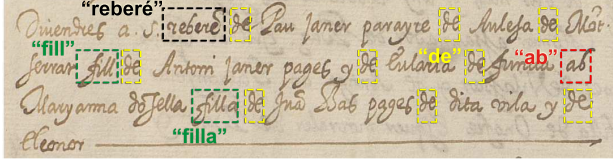 “reberé”
Divendres a. 5. reberé de Pau Janer parayre de Aulesa de Mõt-
“fill” “de” “ab”
serrat fill de Antoni Janer pages y de Eularia de ab
Maryanna dõsella filla de Juã Bas pages de dita vila y de
“filla”
Eleonor